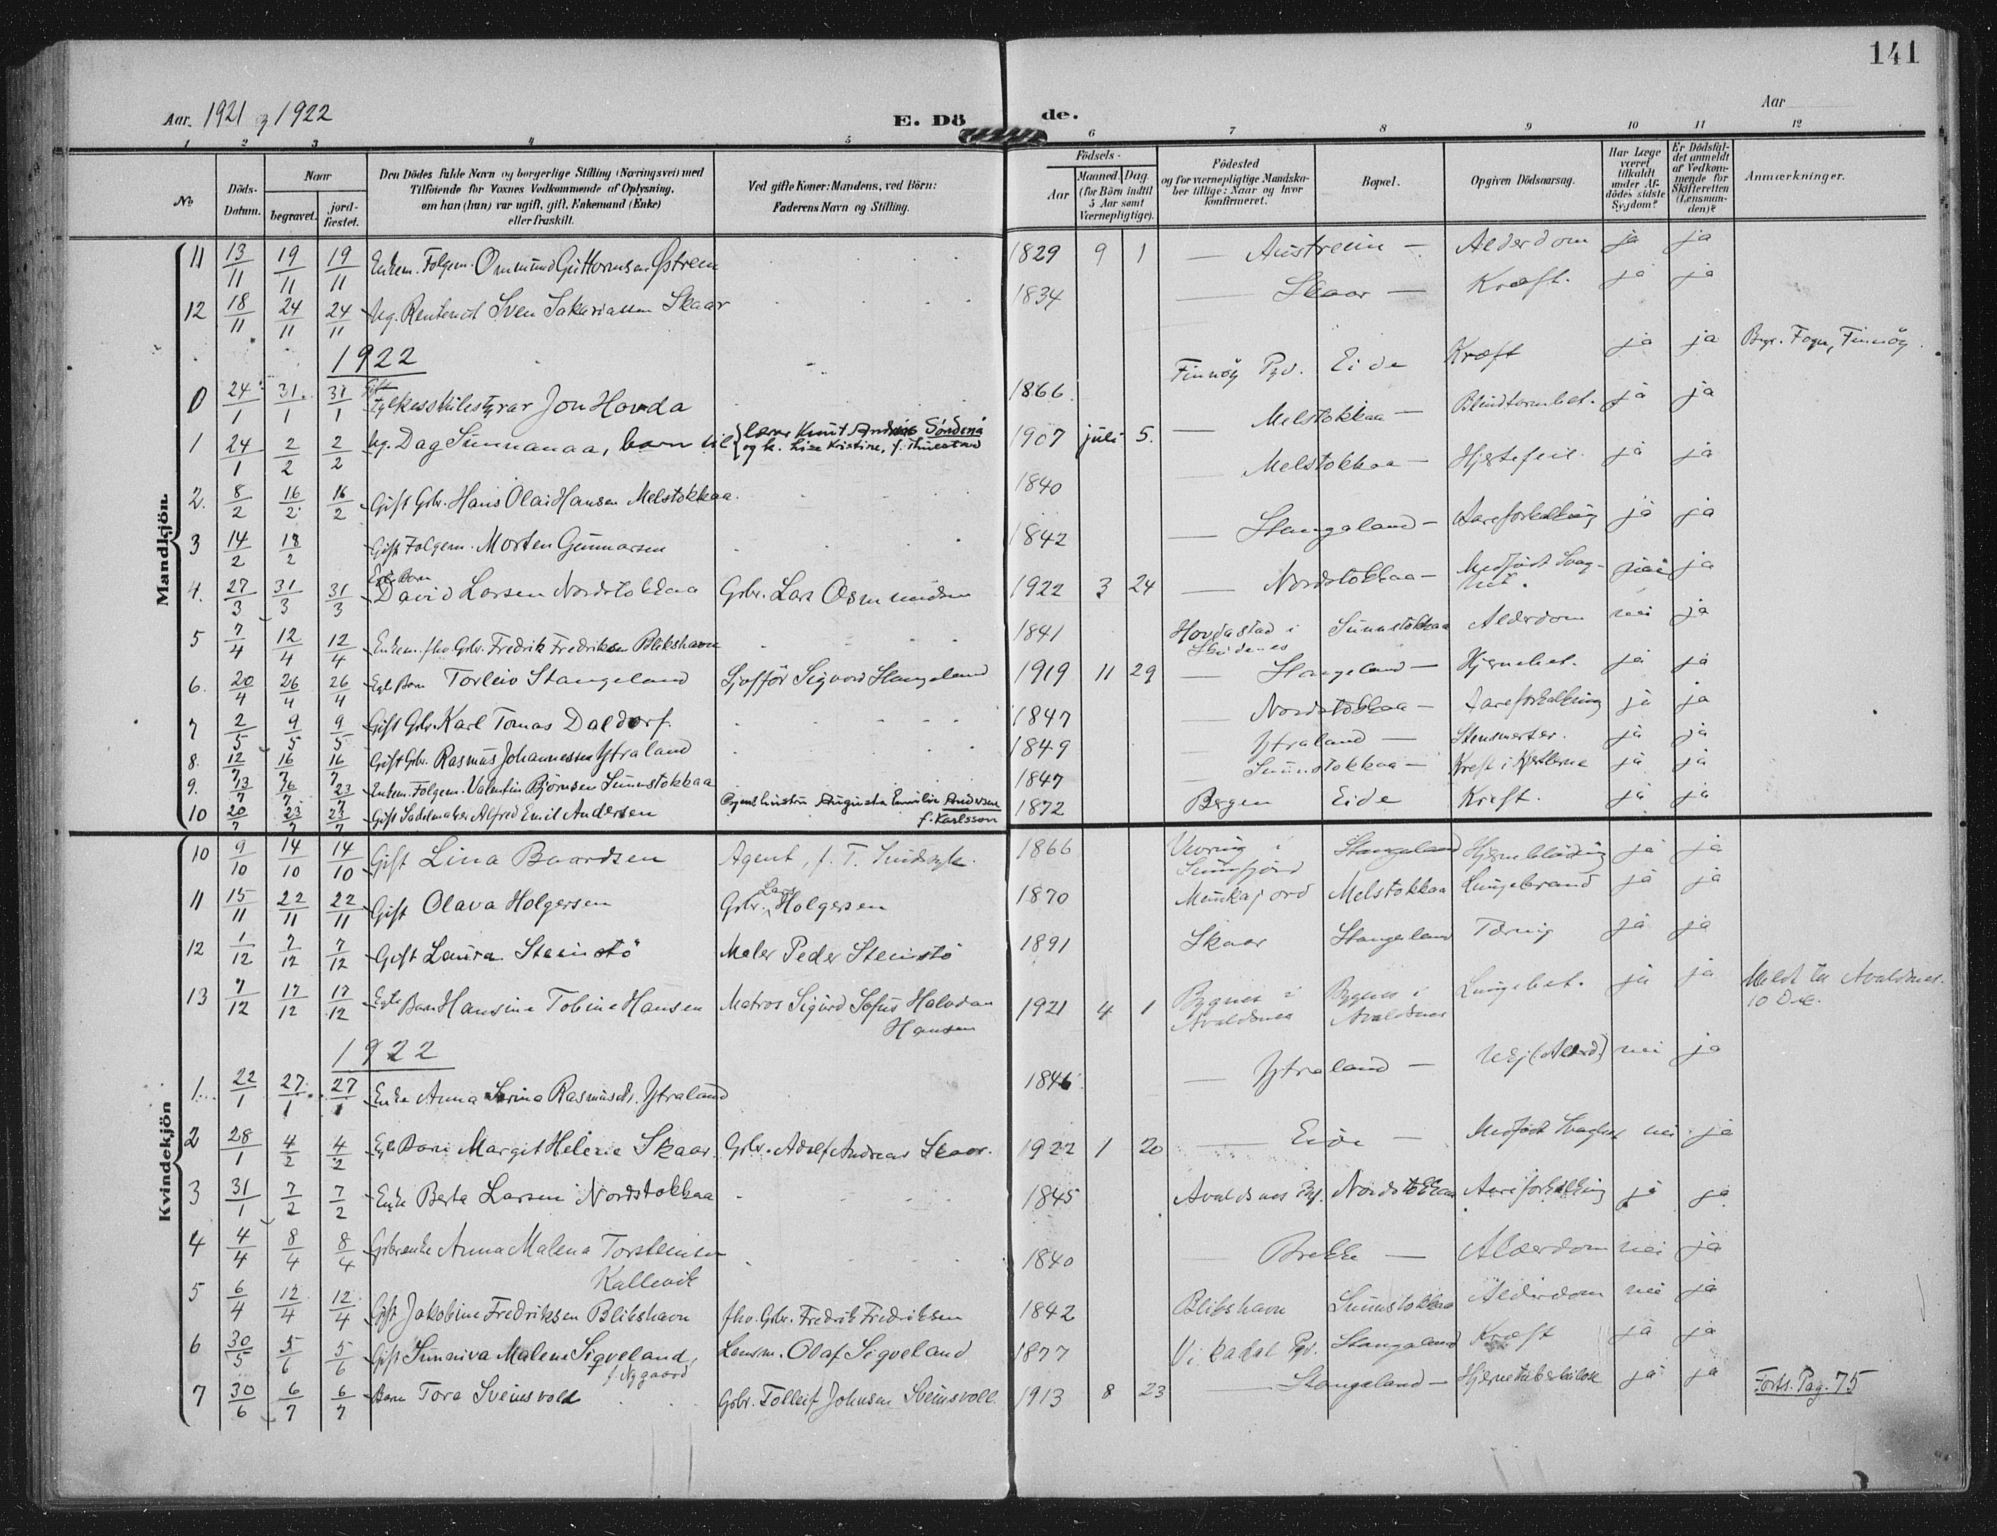 141
Aar. 1921 og 1922
E. Dö de.
Aar
1 2 3 4 5 6 7 8 9 10 11 12
No
Döds-Datum.
Naar
begravet.
jord-fæstet.
Den Dödes fulde Navn og borgerlige Stilling (Næringsvei) med
Tilföiende for Voxnes Vedkommende af Oplysning,
om han (hun) var ugift, gift, Enkemand (Enke)
eller fraskilt.
Ved gifte Koner: Mandens, ved Börn:
Faderens Navn og Stilling.
Födsels-
Aar
Maaned. Dag.
(for Börn indtil
5 Aar samt
Værnepligtige).
Födested
og for værnepligtige Mandska-
ber tillige: Naar og hvor
konfirmeret.
Bopæl.
Opgiven Dödsaarsag.
Har Læge
været
tilkaldt
under Af-
dödes sidste
Sygdom?
Er Dödsfal-
det anmeldt
af Vedkom-
mende for
Skifteretten
(Lensman-
den)?
Anmærkninger.
Mandkjön.
11 13/11 19/11 19/11 Enkem. Folgem. Ommund Guttormsen Østrem 1829 9 1 — Austreim — Alderdom ja ja
12 18/11 24/11 24/11 Ug. Rentenist Sven Sakariassen Skaar 1834 — Skaar — Kræft. ja ja
1922
0 24/1 31/1 31/1 Gift Fylkesskulestyrar Jon Hovda 1866 Finnöy Pgd. Eide Kræft ja ja Begr. Fogn, Finnöy.
1 24/1 2/2 2/2 Ug. Dag Sunnanaa, barn til lærer Knut Andreas Söndenå og h. Lise Kristine, f. Thuestad 1907 juli 5. — Melstokkaa — Blindtarmbet. ja ja
2. 8/2 16/2 16/2 Gift Gbr. Hans Olai Hansen Melstokkaa 1840 — Melstokkaa — Hjertefeil ja ja
3 14/2 18/2 Gift Folgem. Morten Gunnarsen 1842 — Stangaland — Aareforkalkning ja ja
4. 27/3 31/3 31/3 Egte Barn David Larsen Nordstokkaa Gbr. Lars Osmundsen 1922 3 24 — Nordstokkaa — Medfödt Svaghet. nei ja
5 7/4 12/4 12/4 Enkem. fhv. Gbr. Fredrik Fredriksen Blikshavn 1841 Hovdastad i Skudenes Sunnstokkaa Alderdom nei ja
6. 20/4 26/4 26/4 Egte Barn Torleiv Stangeland Sjafför Sigvard Stangeland 1919 11 29 — Stangeland — Hjernebet. ja ja
7 2/5 9/5 9/5 Gift Gbr. Karl Tomas Daldorf. 1847 Nordstokkaa — Aareforkalkning ja ja
8. 12/7 16/7 16/7 Gift Gbr. Rasmus Johannessen Ytraland 1849 — Ytraland — Stensmerter. ja ja
9. 13/7 16/7 23/7 Enkem. Folgem. Valentin Björnsen Sunnstokkaa 1847 — Sunnstokkaa — Kreft i Kjertlerne ja ja
10 20/7 23/7 23/7 Gift Sadelmaker Alfred Emil Andersen Augusta Emilie Andersen f. Karlsson 1872 Bergen Eide Kreft. ja ja
Kvindekjön
10 9/10 14/10 14/10 Gift Lina Baardsen Agent, f. T. 1866 Vevring i Sunnfjord Stangaland Hjerneblödning ja ja
11 15/11 22/11 22/11 Gift Olava Holgersen Gbr. Lars Holgersen 1870 Munkajord Melstokkaa Lungebrand ja ja
12 1/12 7/12 7/12 Gift Laura Steinstö Maler Peder Steinstö 1891 Skaar Stangeland Tæring ja ja
13 7/12 17/12 17/12 Egte Barn Hansine Tobine Hansen Matros Sigurd Sofus Halvdan Hansen 1921 4 1 Bygnes i Avaldsnes Bygnes i Avaldsnes Lungebet. ja ja Meldt til Avaldsnes. 10 Des.
1922
1. 22/1 27/1 27/1 Enke Anna Serina Rasmusdt. Ytraland 1846 — Ytraland — nei ja
2 28/1 4/2 4/2 Egte Barn Margit Helene Skaar. Gbr. Adolf Andreas Skaar. 1922 1 20 — Eide — Medfödt Svaghet nei ja
3 31/1 7/2 7/2 Enke Berta Larsen Nordstokkaa 1845 Avaldsnes Pgd. Nordstokkaa Aareforkalkning ja ja
4 4/4 8/4 8/4 Gbrenke Anna Malena Torsteinsen Kallevik 1840 — Brekke — Alderdom nei ja
5 6/4 12/4 12/4 Gift Jakobine Fredriksen Blikshavn fhv. Gbr. Fredrik Fredriksen 1842 Blikshavn Sunnstokkaa Alderdom nei ja
6 30/5 5/6 5/6 Gift Sunniva Malene Sigveland, f. Nygaard Lensm. Olaf Sigveland 1877 Vikedal Pgd. Stangaland Kræft ja ja
7 30/6 6/7 6/7 Barn Tora Sveinsvoll Gbr. Tolleif Johnsen Sveinsvoll 1913 8 23 — Stangaland — Hjernetuberkulose ja ja Forts. Pag. 75